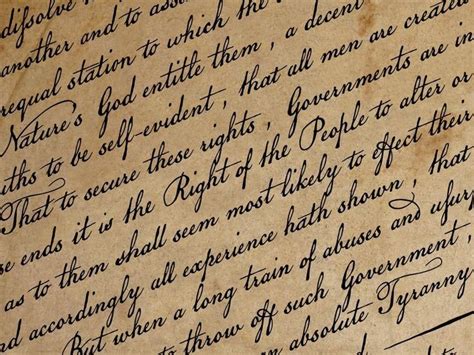 diſsolve
another and to
requal station to which the
Nature's God entitle them , a decent
uths to be self-evident , that all men are created
That to secure these rights , Governments are in
se ends it is the Right of the People to alter or
as to them shall seem most likely to effect their
nd accordingly all experience hath shown , that
But when a long train of abuses and usurp
to throw off such Government ,
an absolute Tyranny